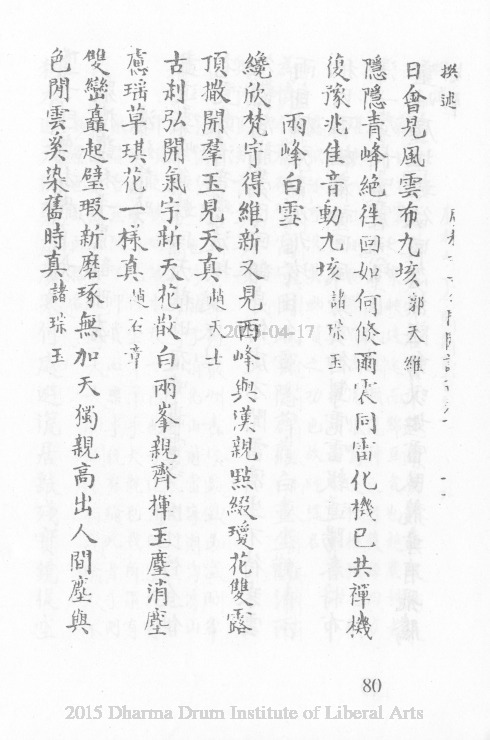 撰述
日會見風雲布九垓郭天維
隱隱青峰絶徃回如何倐爾雲同雷化機已共禪機
復豫兆佳音動九垓諸琮玉
雨峰白雪
纔欣梵宇得維新又見西峰與漢親點綴瓊花雙露
頂撒開羣玉見天真 天士
古刹弘開氣宇新天花散白兩峯親齊揮玉麈消塵
慮瑶草琪花 樣真 石章
雙巒矗起璧瑕新磨琢無加天獨親高出人間塵與
色閒雲奚染舊時真諸琮玉
80
2015-04-17
2015 Dharma Drum Institute of Liberal Arts